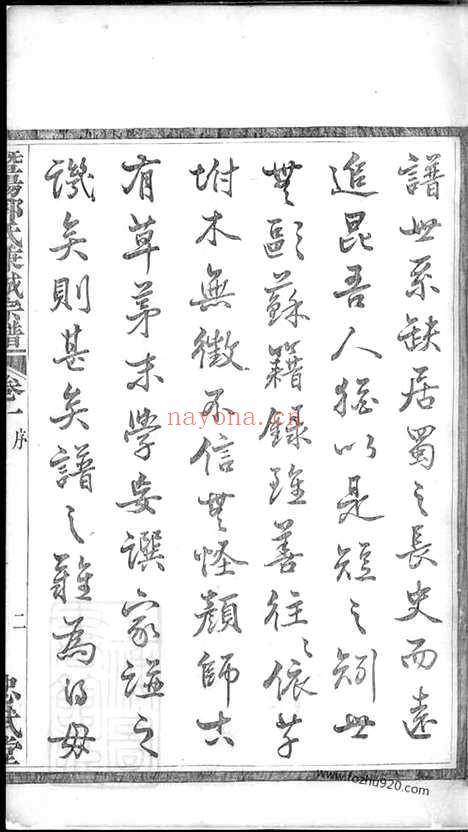 譜世系缺居蜀之長史而遠
追昆吾人猶以是短之矧世
無歐蘇籍錄雖善往往依草
坿木無徵不信無怪顏師古
有草茅末學妄譔家譜之
譏矣則甚矣譜之難為而毋
暨陽郭氏宗譜
卷一
序
二
忠武堂
nayona.cn
www.fozhu920.com